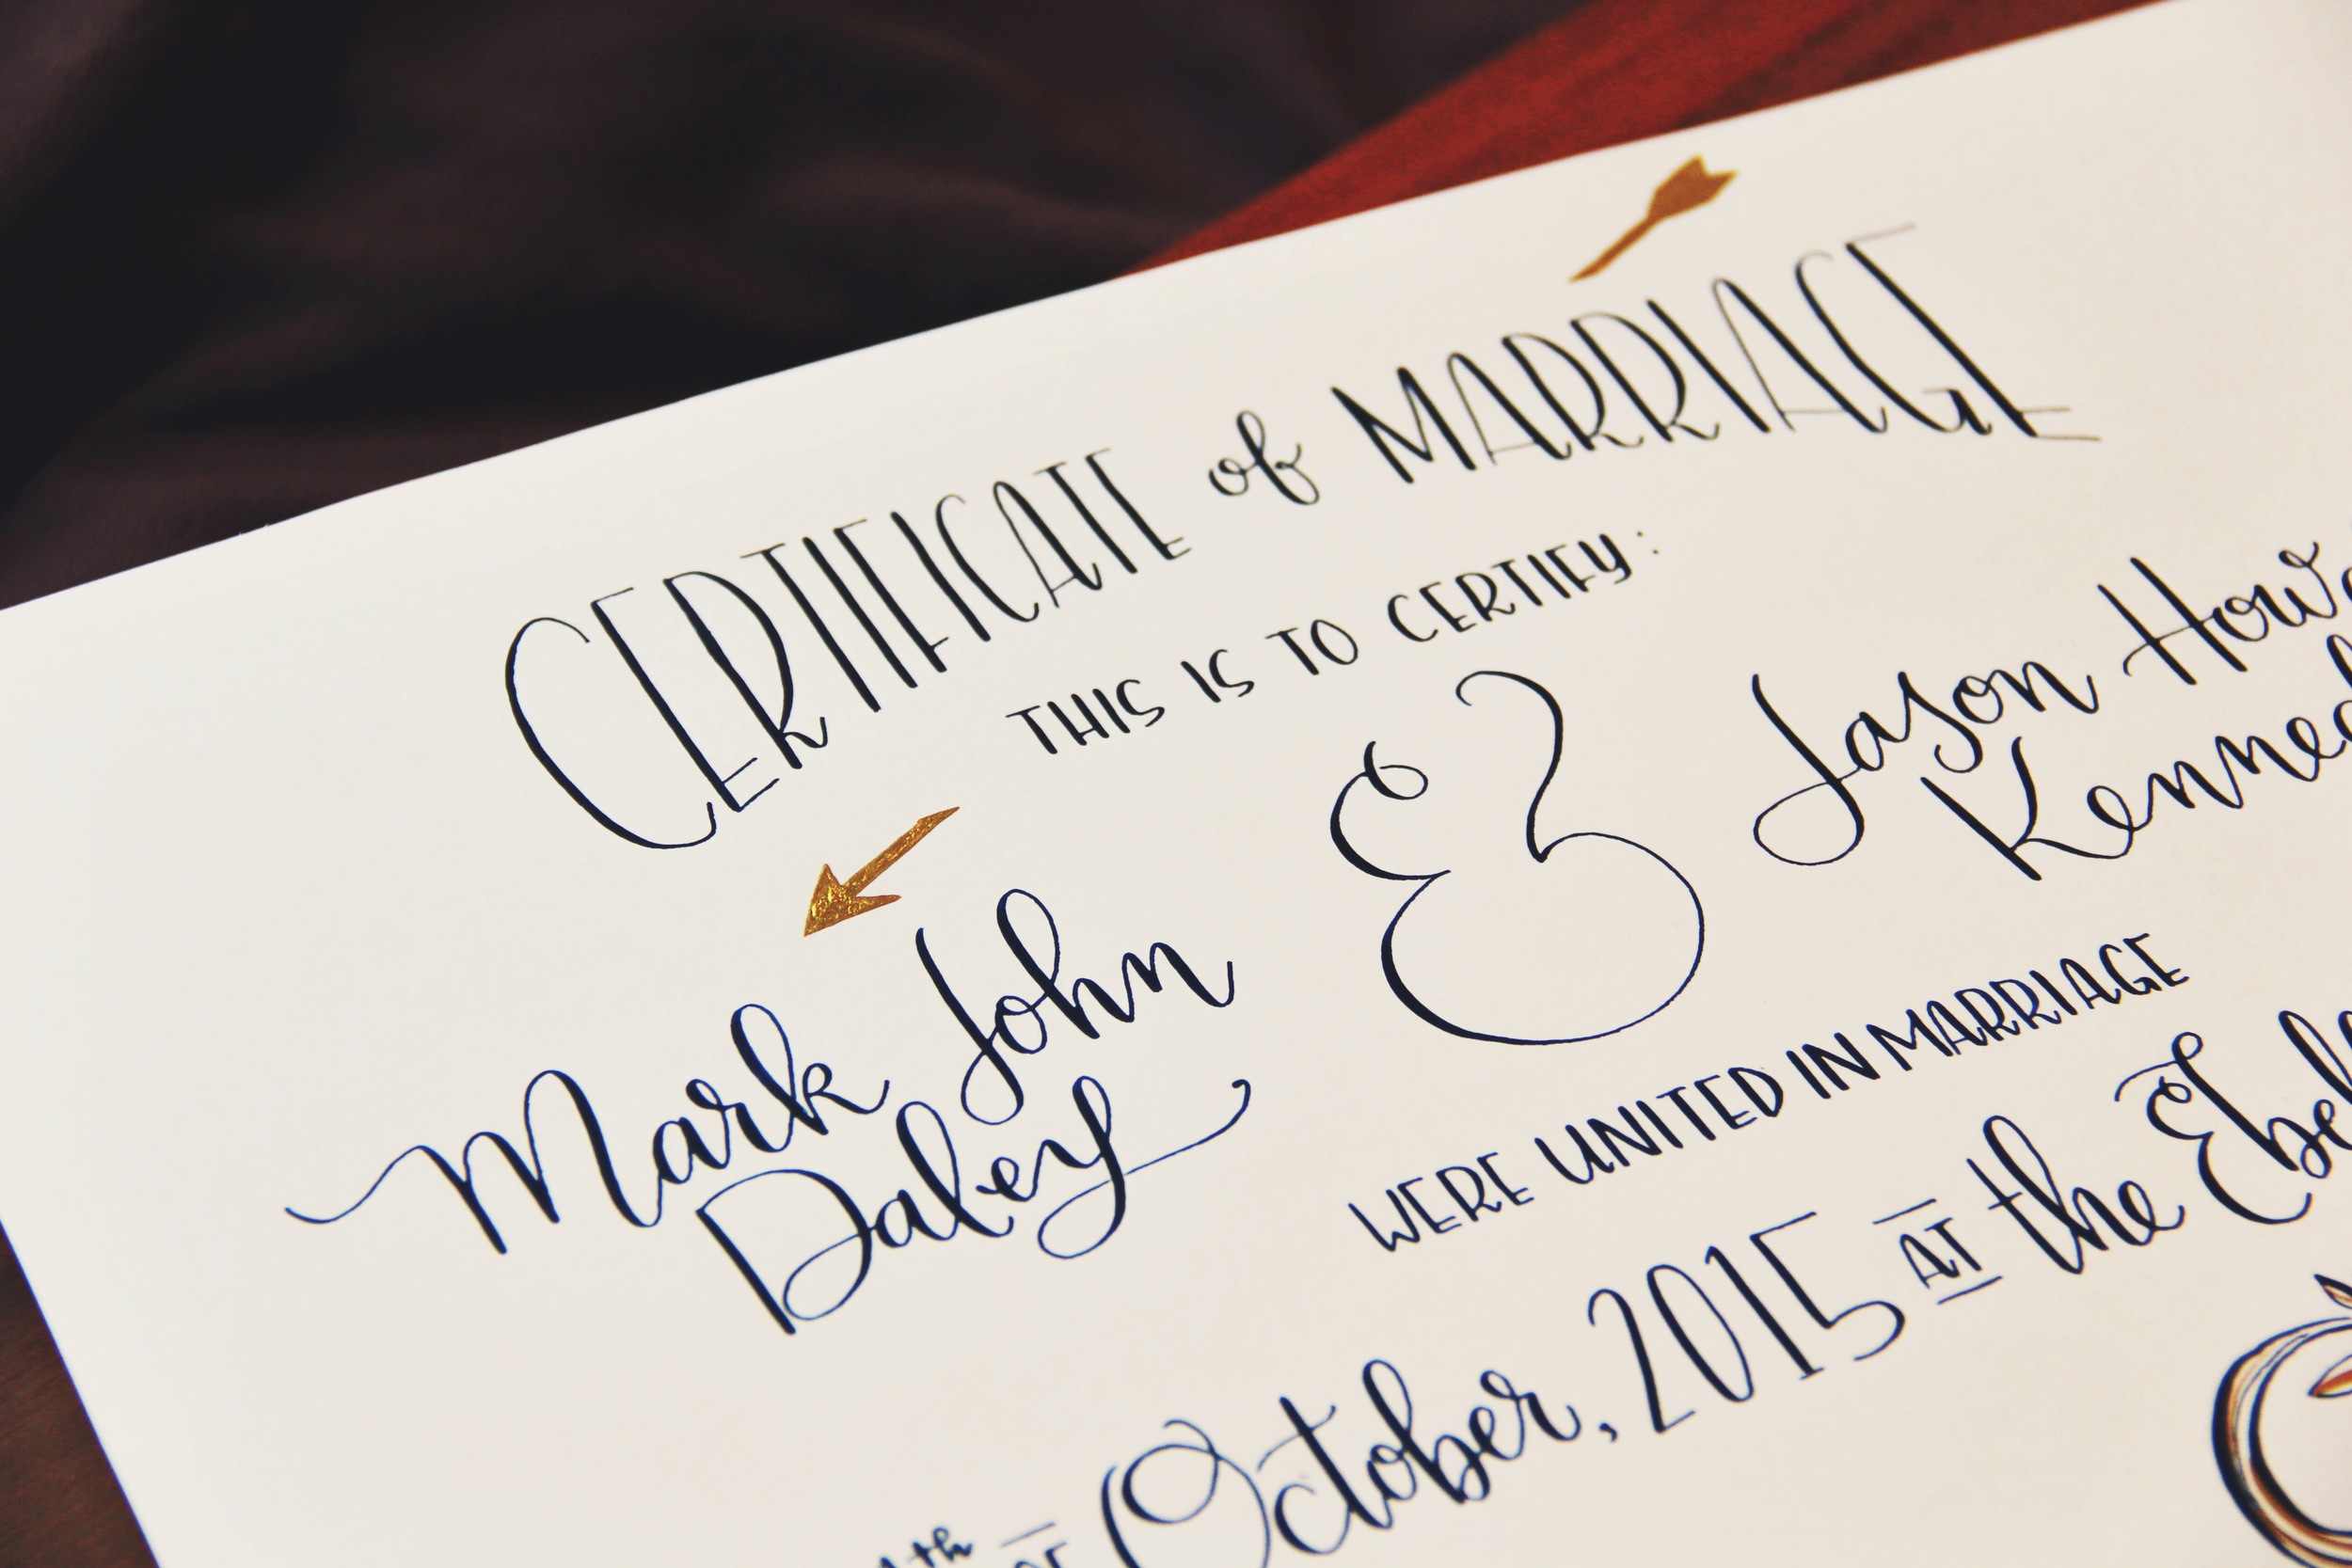 CERTIFICATE of MARRIAGE
THIS IS TO CERTIFY:
Mark John
Daley
&
Jason How
Kenned
WERE UNITED IN MARRIAGE
th OF October, 2015 AT the Ebel